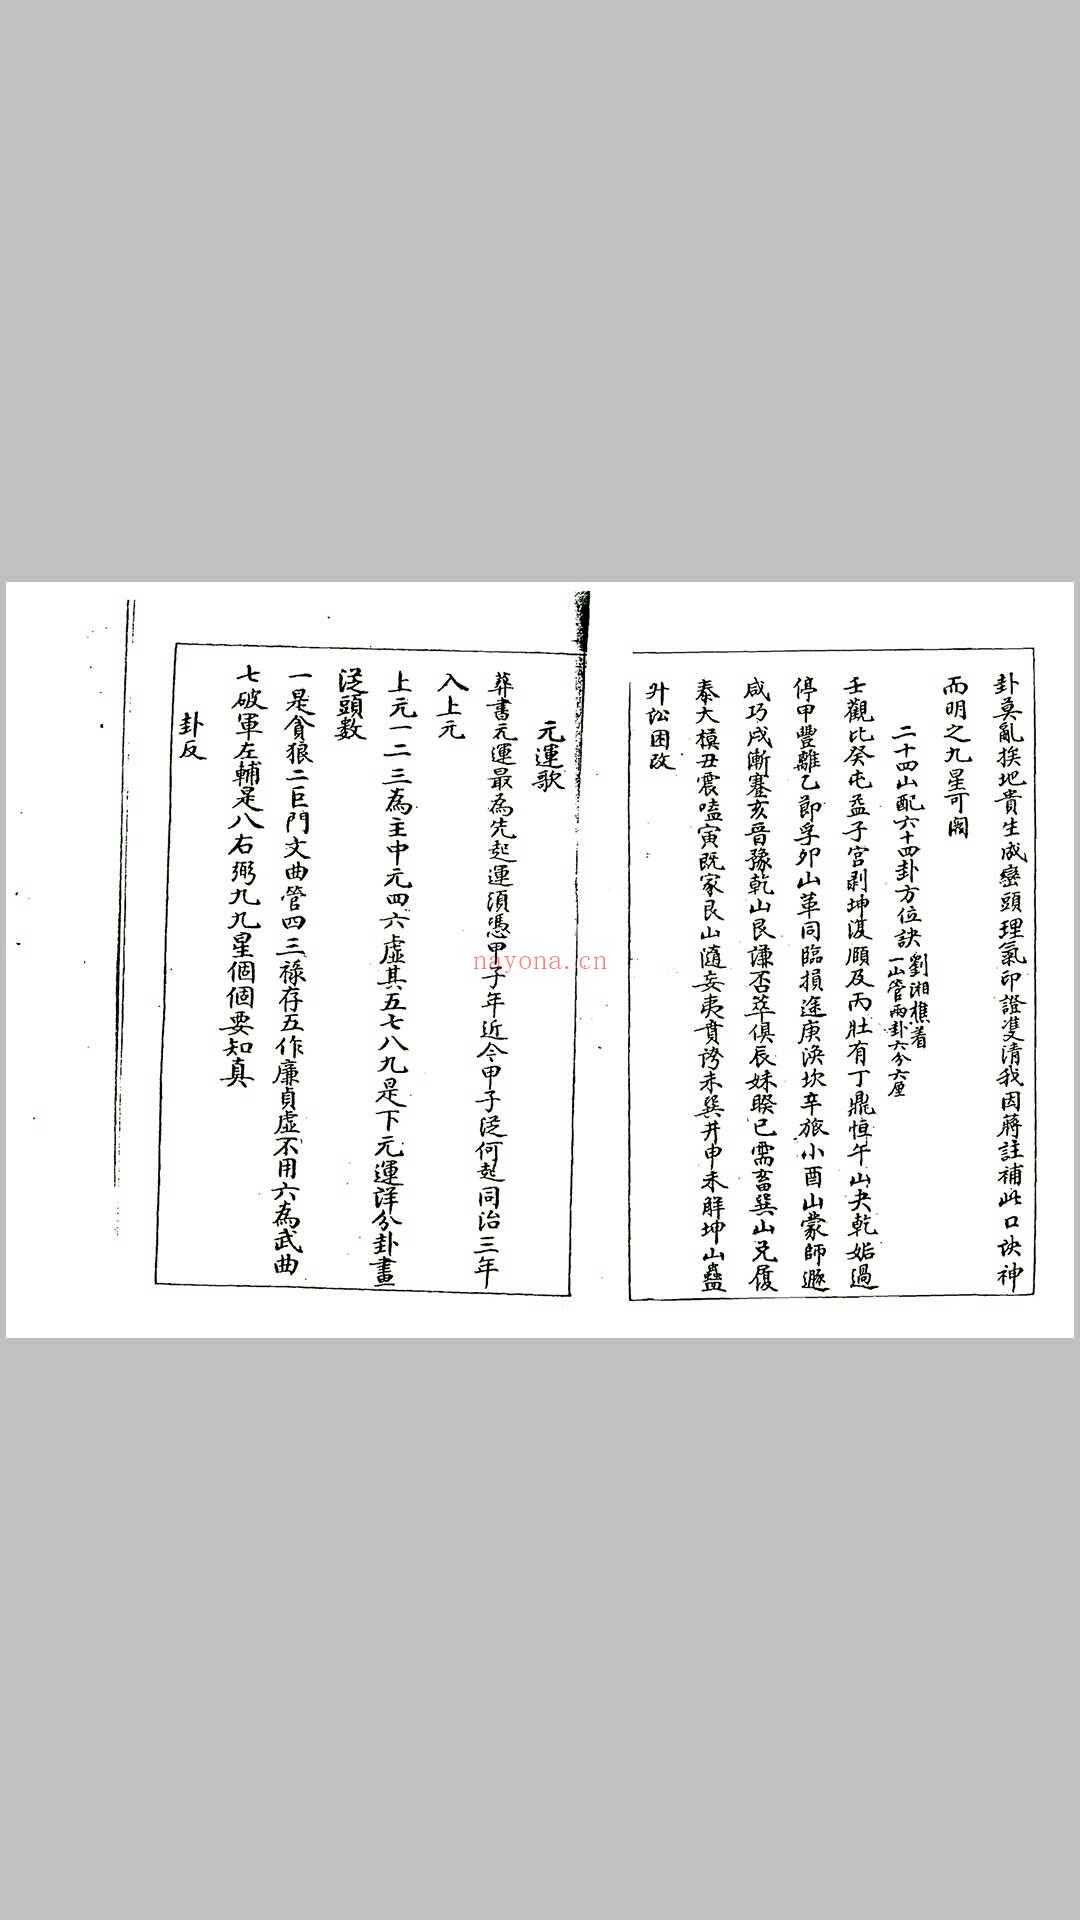 卦莫亂挨地貴生成巒頭理氣印證雙清我因蔣註補此口訣神
而明之九星可閱
二十四山配六十四卦方位訣 劉湘樵着
一山管兩卦六分六厘
壬觀比癸屯益子宮剥坤復頤及丙壯有丁鼎恒午山夬乾姤過
停甲豐離乙節孚卯山革同臨損途庚渙坎辛旅小酉山蒙師遯
咸巧戌漸蹇亥晋豫乾山艮謙否萃俱辰妹睽巳需畜巽山兌履
泰大模丑震嗑寅既家艮山隨妄夷賁誇未巽井申未解坤山蠱
升訟困改
元運歌
葬書元運最為先起運須憑甲子年近今甲子泛何起同治三年
入上元
上元一二三為主中元四六虛其五七八九是下元運詳分卦畫
泛頭數
一是貪狼二巨門文曲管四三祿存五作廉貞虛不用六為武曲
七破軍左輔是八右弼九九星個個要知真
卦反
nayona.cn